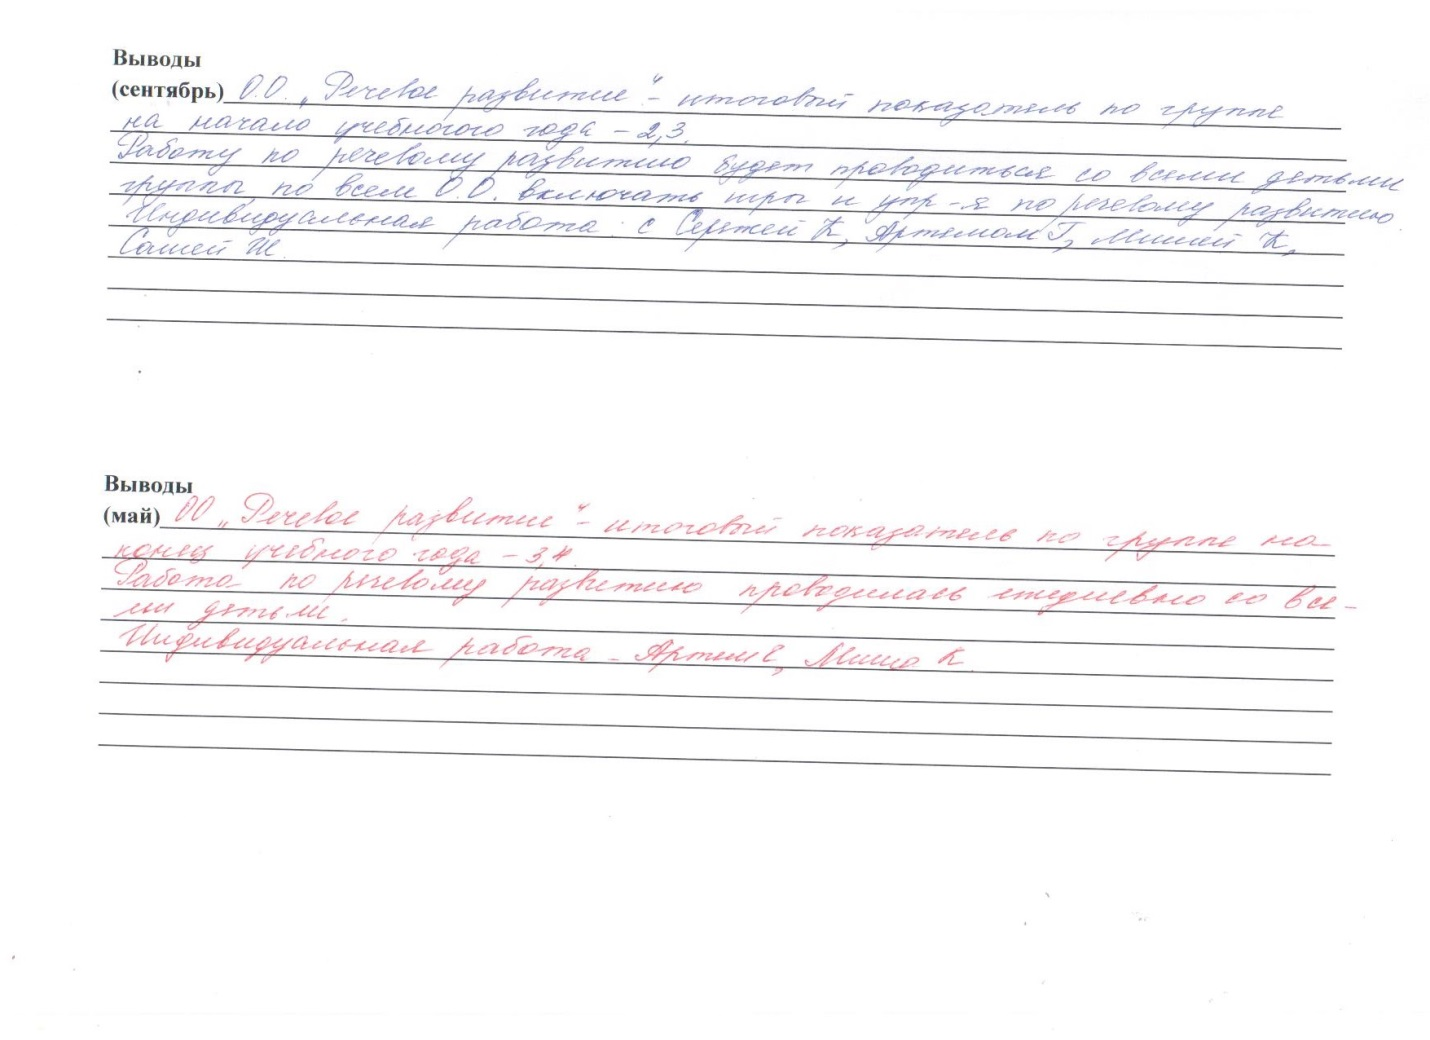 Выводы
(сентябрь) О.О. „Речевое развитие“ – итоговый показатель по группе
на начало учебного года – 2,3.
Работу по речевому развитию будет проводиться со всеми детьми
группы, по всем О.О. включать игры и упр-я по речевому развитию
Индивидуальная работа: с Сережей К, Артемом Г, Мишей К,
Сашей Ш.
Выводы
(май) ОО „Речевое развитие“ – итоговый показатель по группе на
конец учебного года – 3,4.
Работа по речевому развитию проводилась ежедневно со все-
ми детьми.
Индивидуальная работа – Артем, Миша К.